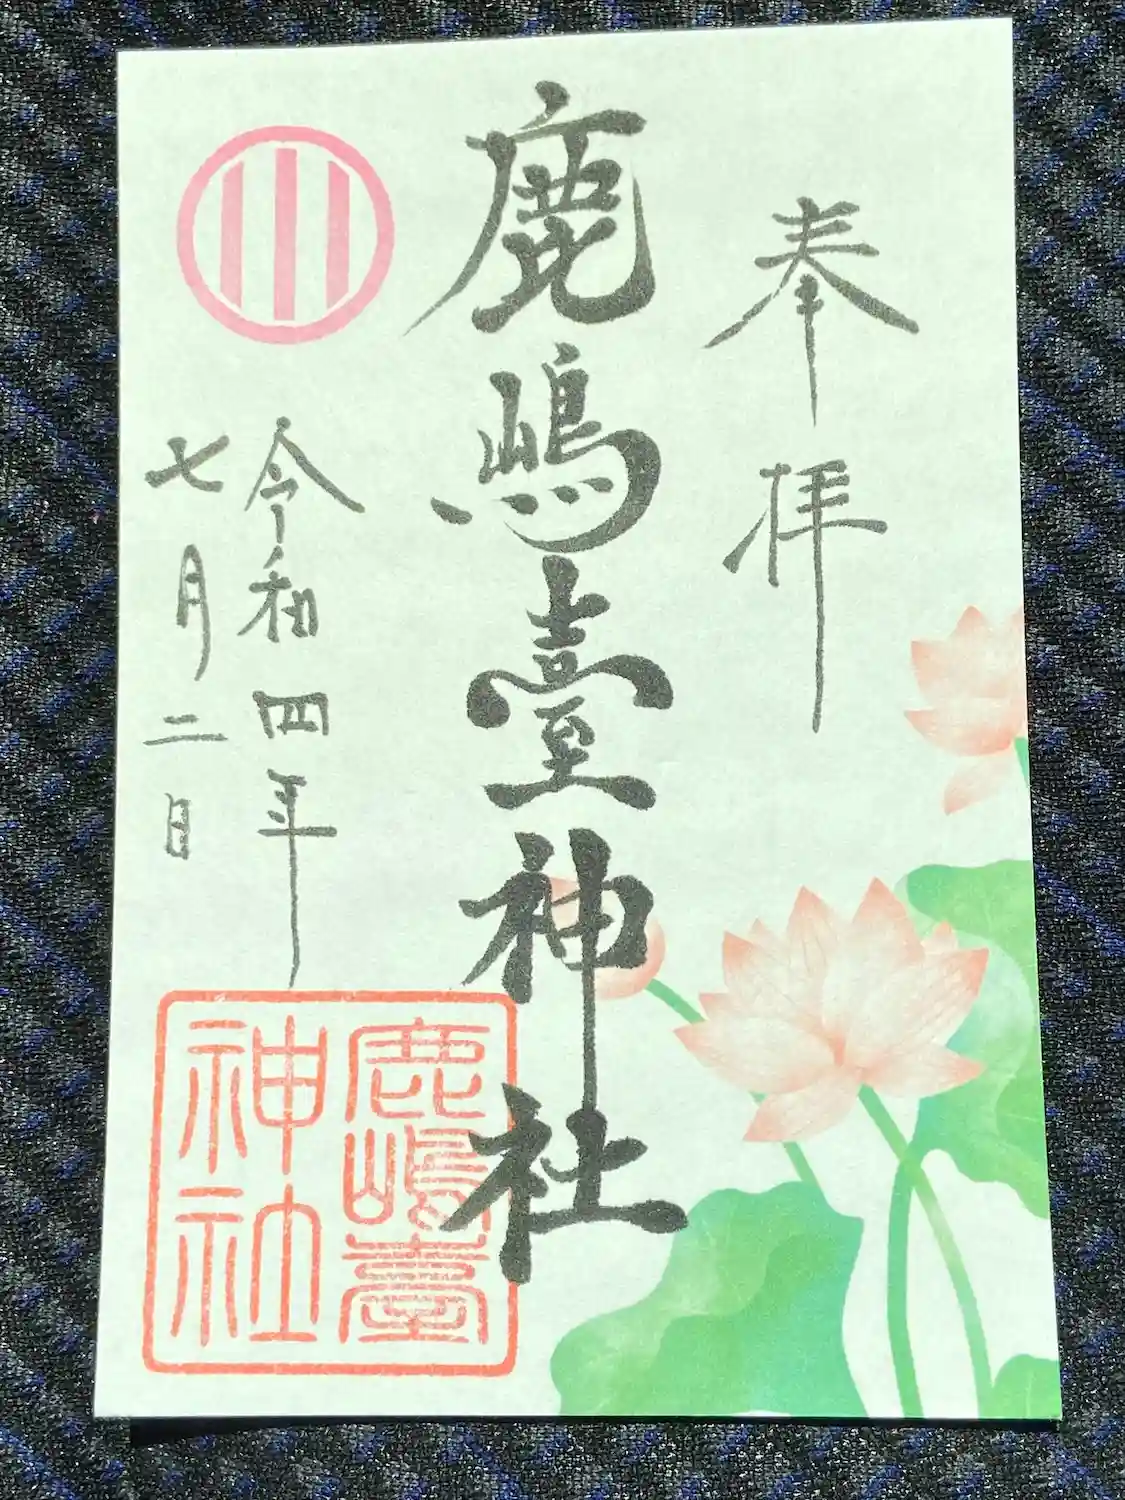 奉拝
鹿嶋臺神社
令和四年
七月二日
鹿嶋臺
神社